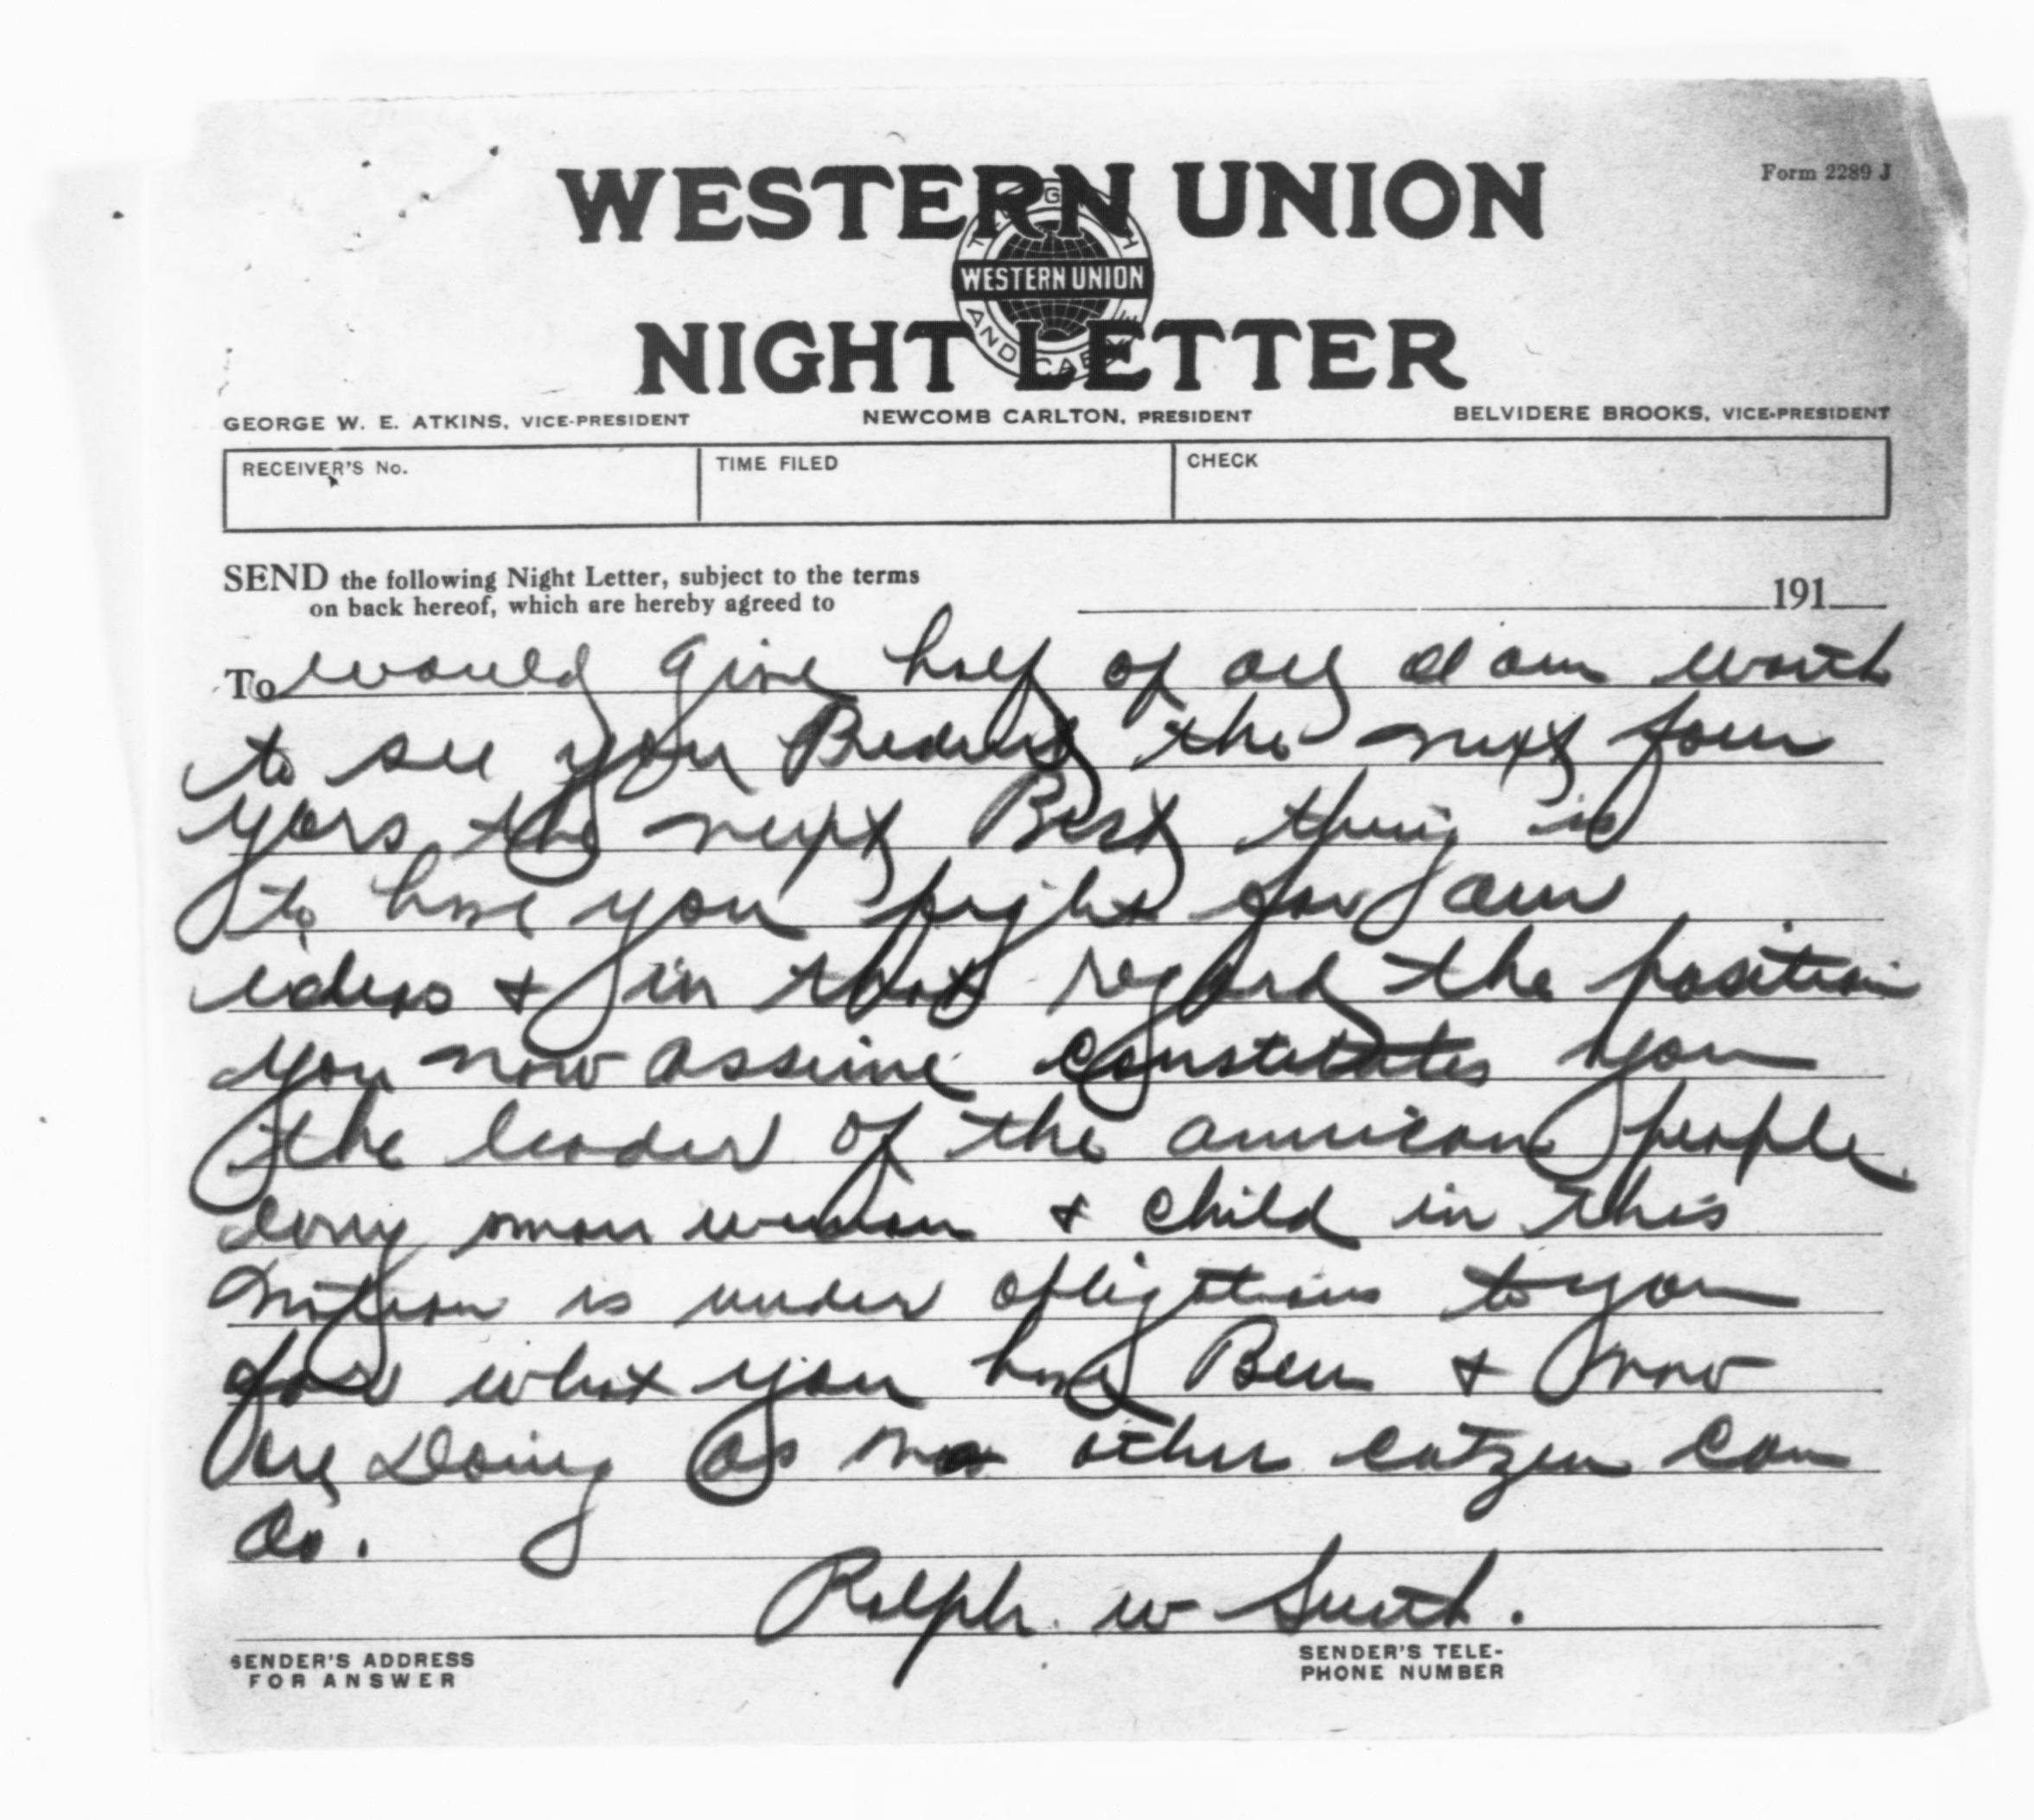 Form 2289 J
WESTERN UNION
TELEGRAPH AND CABLE
WESTERN UNION
NIGHT LETTER
GEORGE W. E. ATKINS, VICE-PRESIDENT NEWCOMB CARLTON, PRESIDENT BELVIDERE BROOKS, VICE-PRESIDENT
RECEIVER'S No. TIME FILED CHECK
SEND the following Night Letter, subject to the terms
on back hereof, which are hereby agreed to 191
To would give half of all I am worth
to see you the next four
years the next Best thing is
to have you fight for our
ideas & in that regard the position
you now assume constitutes you
the leader of the american people
every man woman & child in this
nation is under obligations to you
for what you have Been & now
are Doing as no other citizen can
do.
Ralph w Smith.
SENDER'S ADDRESS
FOR ANSWER
SENDER'S TELE-
PHONE NUMBER